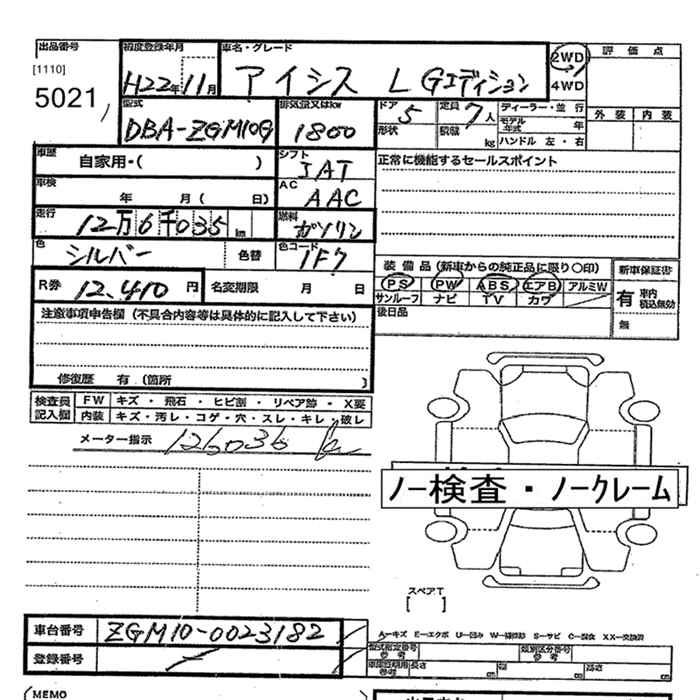 出品番号
[1110]
5021
初度登録年月
H22年11月
車名・グレード
アイシス L Gエディション
2WD
4WD
評価点
外装 内装
型式
DBA-ZGM10G
排気量又はkw
1800
ドア 5
定員 7人
形状
積載 kg
ディーラー・並行
モデル年式 年
ハンドル 左・右
車歴
自家用・( )
シフト
IAT
正常に機能するセールスポイント
車検
年 月( 日)
AC
AAC
走行
12万6千035km
燃料
ガソリン
色
シルバー
色替
色コード
1F7
装備品(新車からの純正品に限り○印)
新車保証書
PS PW ABS エアB アルミW
サンルーフ ナビ TV カワ
有 車内積込無効
無
後日品
R券
12,410円
名変期限 月 日
注意事項申告欄(不具合内容等は具体的に記入して下さい)
修復歴 有(箇所 )
検査員記入欄
FW キズ・飛石・ヒビ割・リペア跡・X要
内装 キズ・汚レ・コゲ・穴・スレ・キレ・破レ
メーター指示 126036 k
ノー検査・ノークレーム
スペアT
[ ]
車台番号 ZGM10-0023182
登録番号
A―キズ E―エクボ U―凹み W―補修跡 S―サビ C―腐食 XX―交換済
型式指定番号 参考
類別区分番号 参考
長さ cm 幅 cm 高さ cm
MEMO